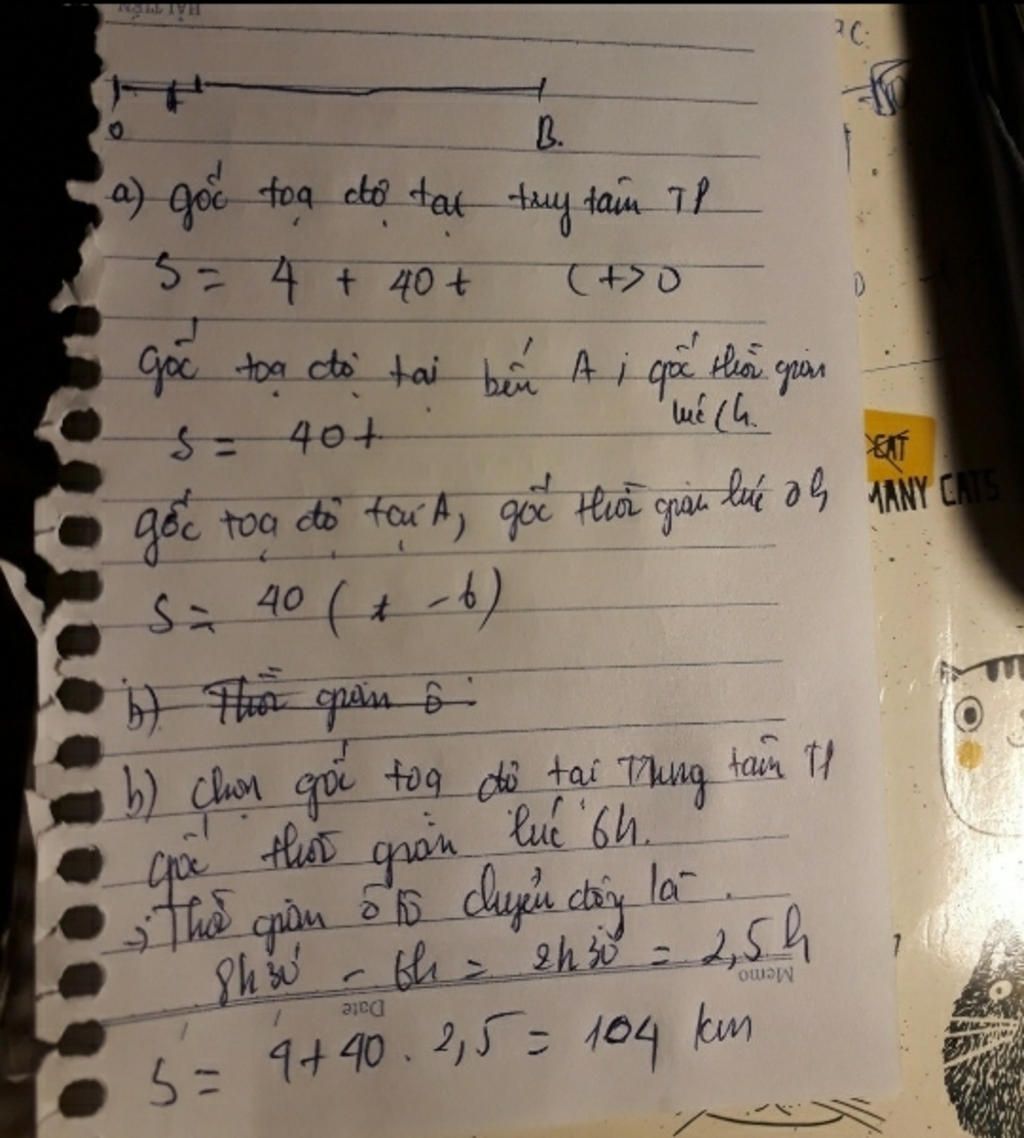 HẢI TIẾN
O
B.
a) gốc toạ độ tại trung tâm TP
S = 4 + 40t (t>0
gốc toạ độ tại bến A ; gốc thời gian
lúc 6h.
S = 40t
gốc toạ độ tại A, gốc thời gian lúc 0h
S = 40 ( t - 6)
b) Thời gian ô
b) Chọn gốc toạ độ tại Trung tâm TP
gốc thời gian lúc 6h.
Thời gian ô tô chuyển động là
8h30' - 6h = 2h30' = 2,5h
Memo
Date
S = 4 + 40 . 2,5 = 104 km
CAT
MANY CATS